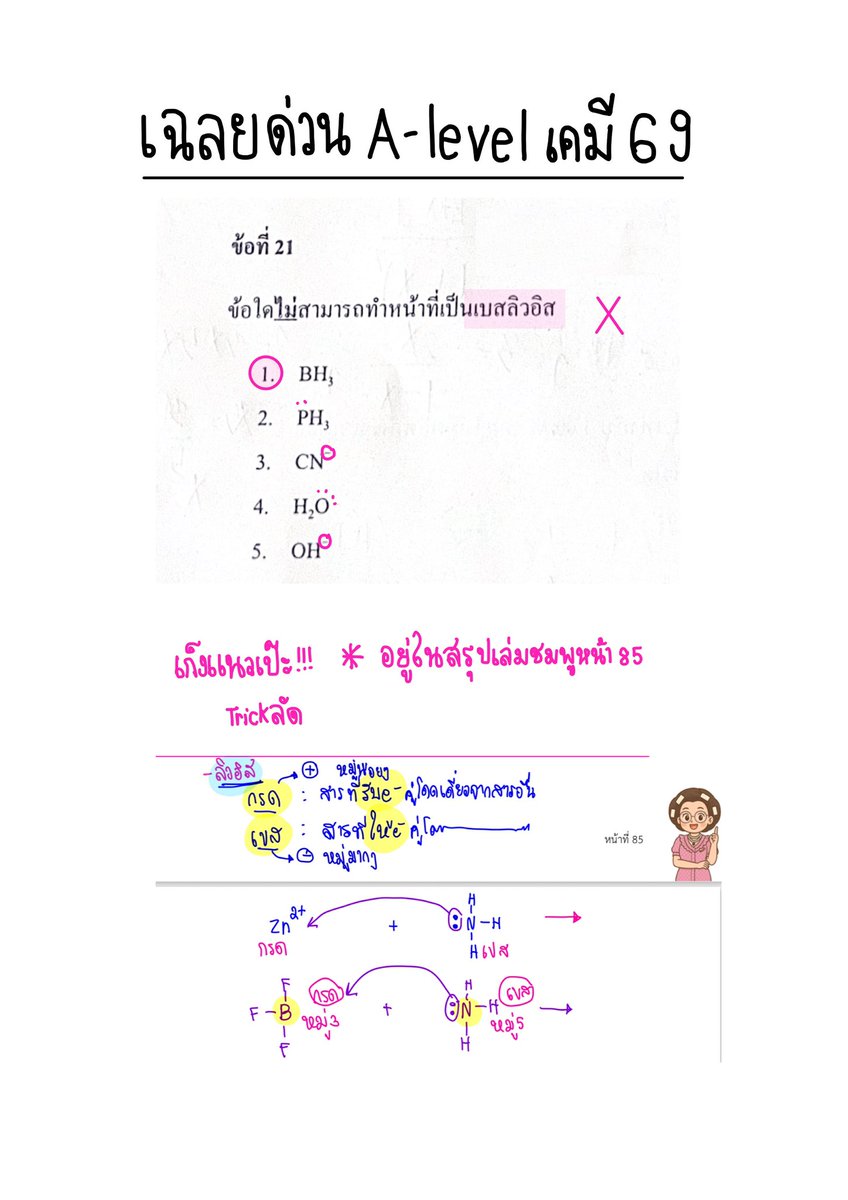 เฉลยด่วน A-level เคมี 69
ข้อที่ 21
ข้อใดไม่สามารถทำหน้าที่เป็นเบสลิวอิส X
1. BH₃
2. PH₃
3. CN⁻
4. H₂O
5. OH⁻
เก็งแนวเป๊ะ!!! * อยู่ในสรุปเล่มชมพูหน้า 85
Trickลัด
- ลิวอิส
+ หมู่น้อยๆ
กรด : สารที่รับe⁻ คู่โดดเดี่ยวจากสารอื่น
เบส : สารที่ให้e⁻ คู่โดด
- หมู่มากๆ
หน้าที่ 85
H
Zn²⁺ + :N-H →
กรด H เบส
F กรด H เบส
F-B + :N-H →
หมู่3 หมู่5
F H